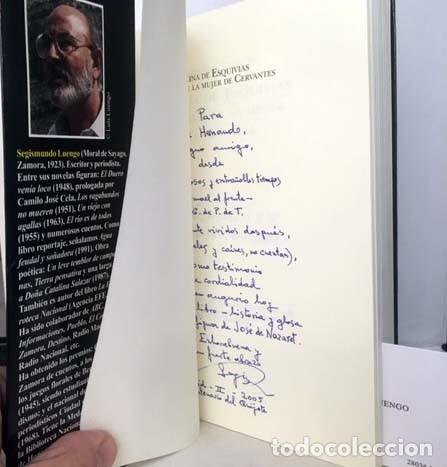 © Luis Luengo
Segismundo Luengo (Moral de Sayago,
Zamora, 1923). Escritor y periodista.
Entre sus novelas figuran: El Duero
venía loco (1948), prologada por
Camilo José Cela, Los vagabundos
no mueren (1951), Un viejo con
agallas (1963), El río es de todos
(1955) y numerosos cuentos. Como
libro reportaje, señalamos, Agua
feudal y señadora (1991). Obra
poética: Un leve temblor de campa-
nas, Tierra pensativa y una larga
a Doña Catalina Salazar (1987).
También es autor del libro La
poteca Nacional (Agencia EFE
Ha sido colaborador de ABC
Informaciones, Pueblo, El C
Zamora, Destino, Radio Ma
Radio Nacional, etc.
Ha obtenido los premios
Zamora de cuentos, a los
los juegos florales de Be
1945), siendo estudiant
disuso), y el nacional de
periodísticas Ciudad
(1968). Tiene la Med
la Biblioteca Nacion
de H
LINA DE ESQUIVIAS
E LA MUJER DE CERVANTES
Para
Hernando,
guo amigo,
desde
osos y entrañables tiempos
al frente
G. de P. de T.
te vividos después,
les y caires, no cuentan),
omo testimonio
cordialidad
en augurio hoy
libro - historia y glosa
de José de Nazaret.
Enhorabuena, y
un fuerte abrazo
d - II - 2005
tenario del Quijote
UENGO
28036
todocoleccion